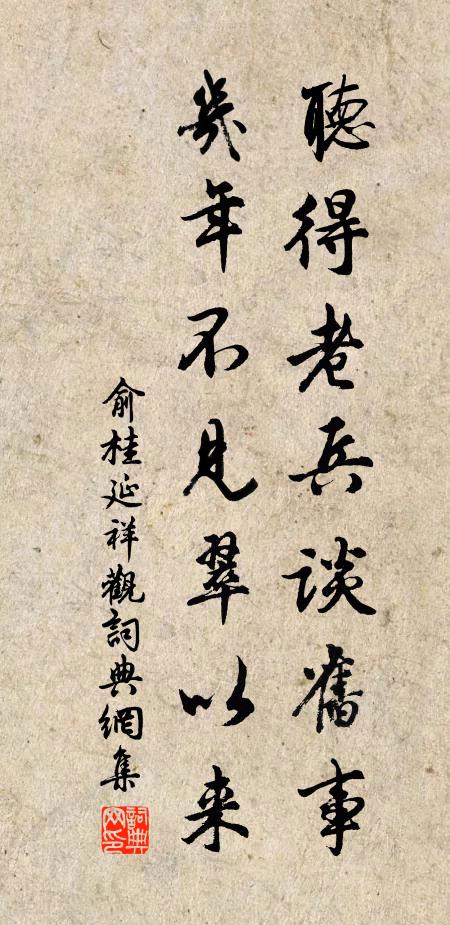 聽得老兵談舊事
幾年不見翠以来
俞桂延祥觀詞典網集
詞典网印